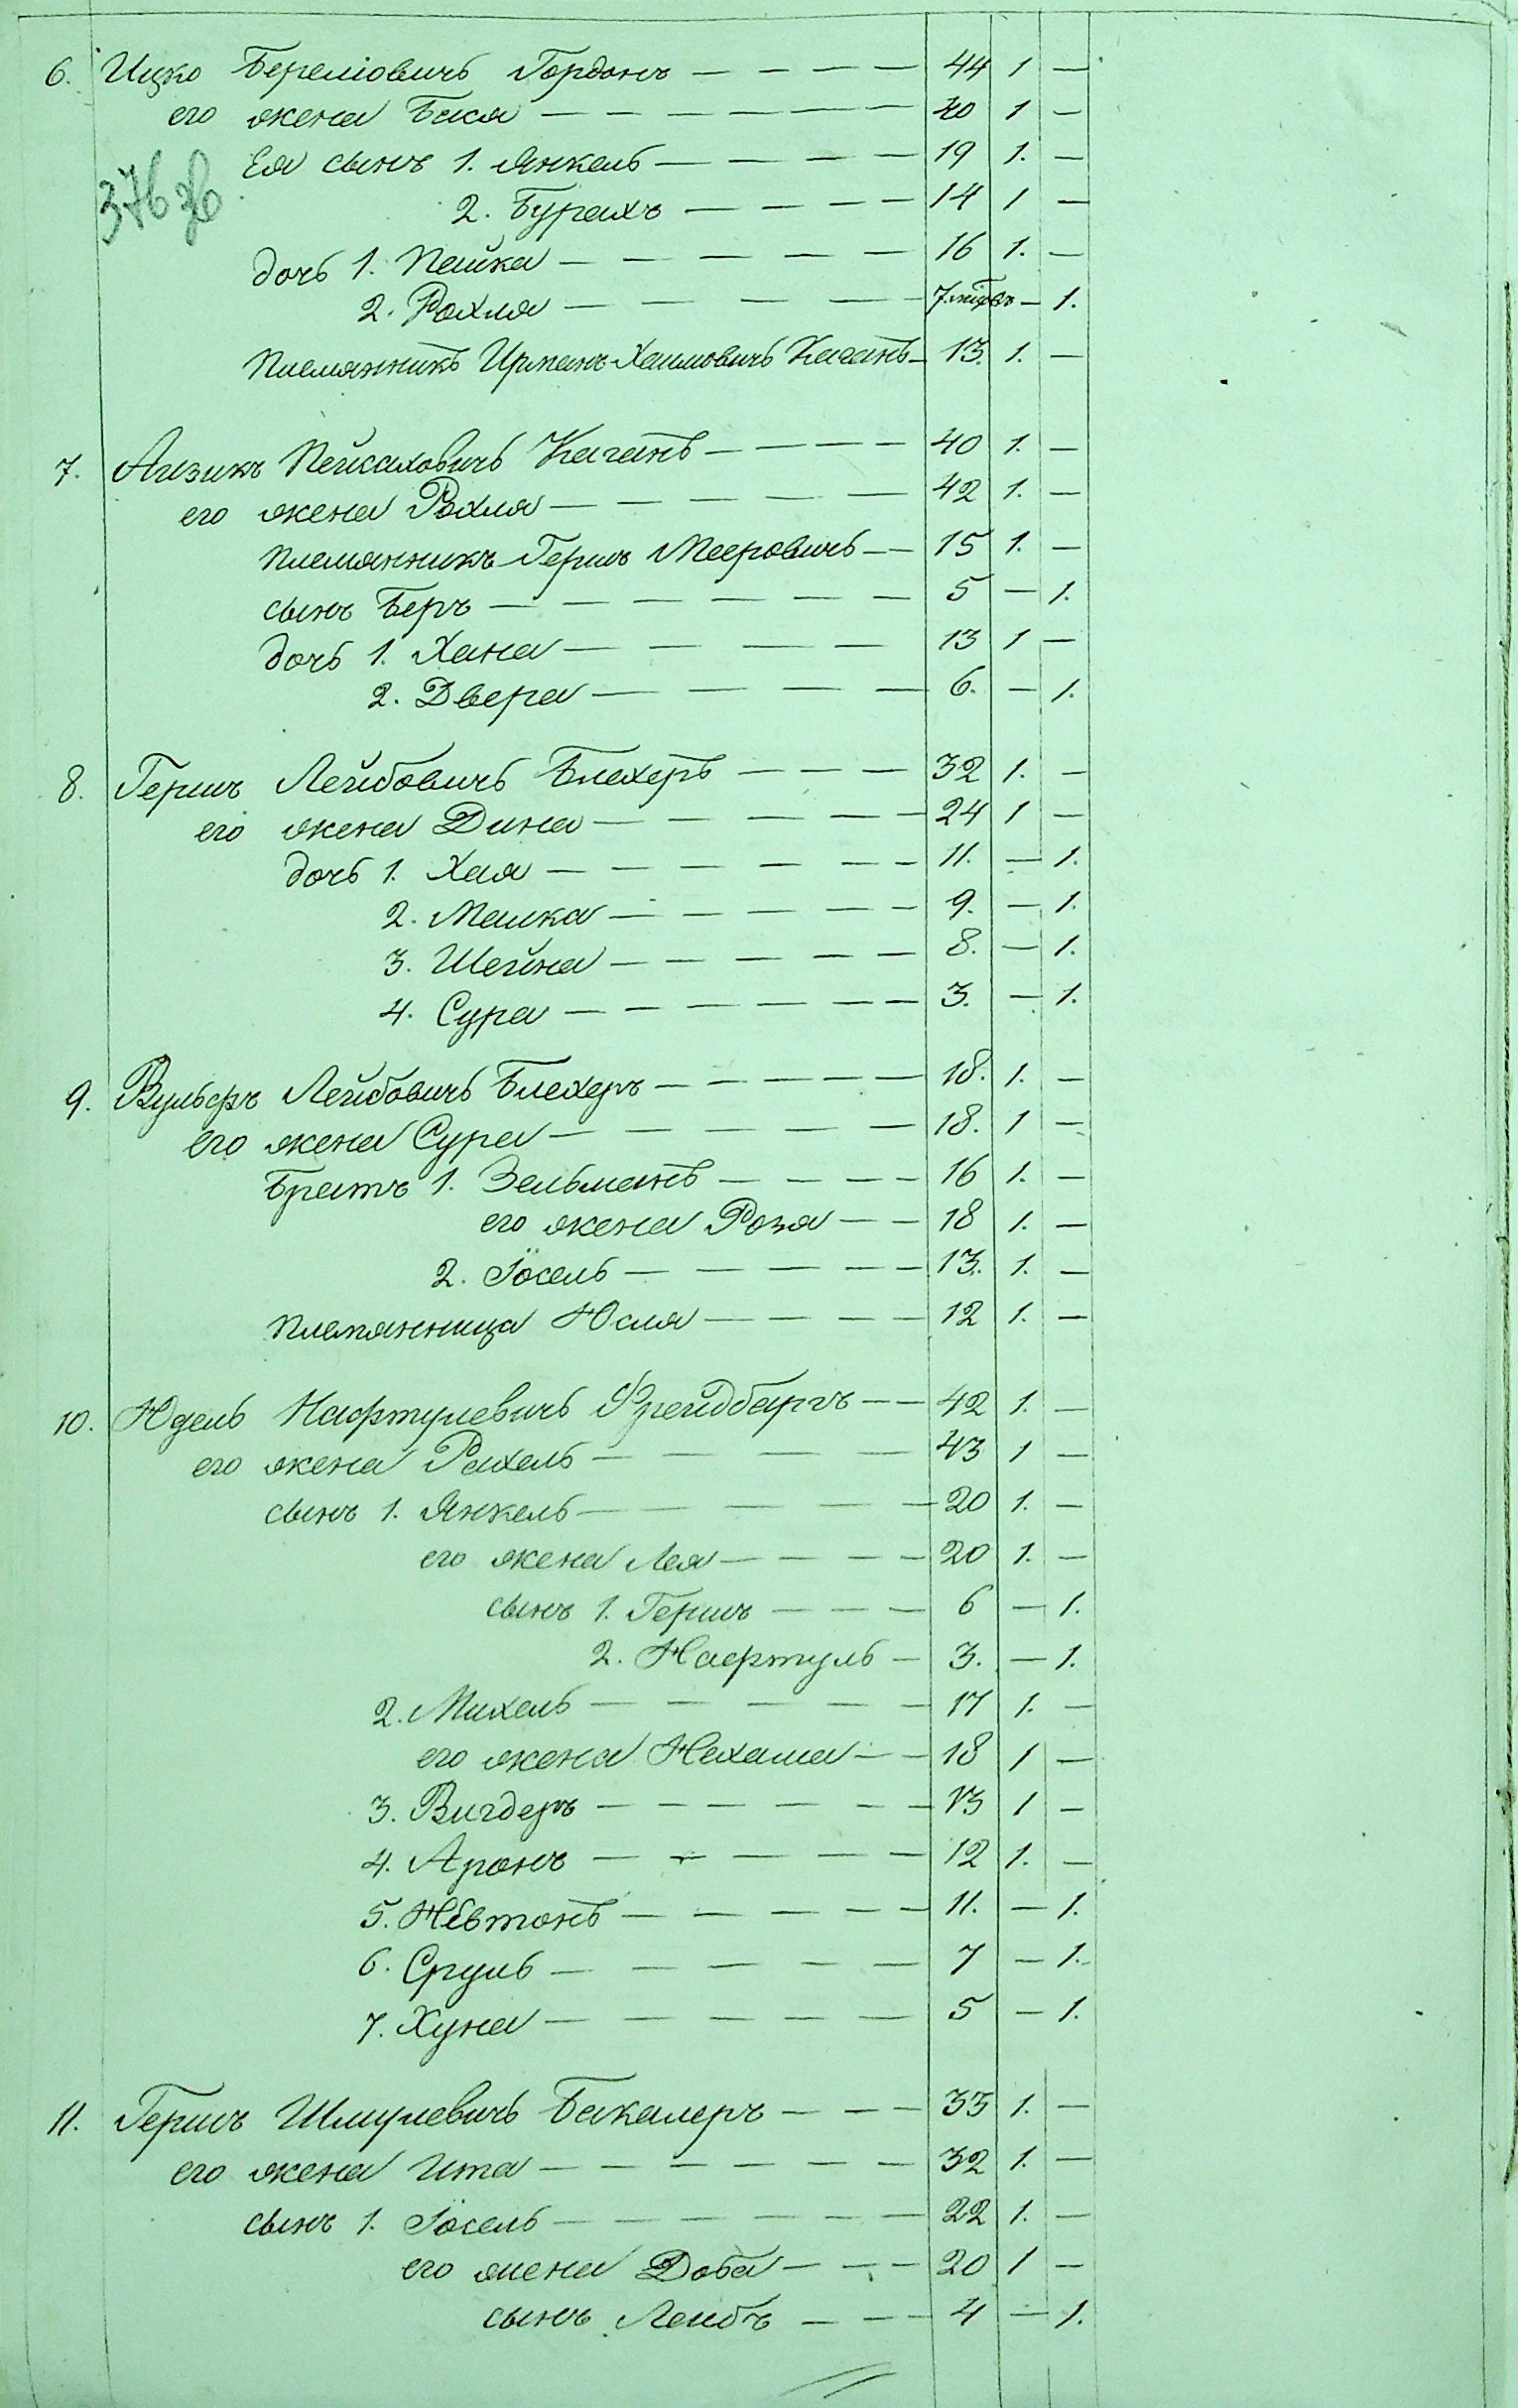 6. Ицко Беріовичъ Гордонъ — — — — 44 1 —
его жена Бася — — — — — — 40 1 —
Ея сынъ 1. Янкель — — — — 19 1. —
376 об
2. Бурахъ — — — — 14 1 —
дочь 1. Пешка — — — — — 16 1. —
2. Рохля — — — — 7 — 1.
Племянникъ Хаимовичъ Каганъ — 13. 1. —
7. Айзикъ Пейсаховичъ Каганъ — — — — 40 1. —
его жена Рохля — — — — — 42 1. —
Племянникъ Гершъ Мееровичъ — — 15 1. —
сынъ Беръ — — — — — — — 5 — 1.
дочь 1. Хана — — — — — 13 1 —
2. Двера — — — — — 6. — 1.
8. Гершъ Лейбовичъ Блехеръ — — — 32 1. —
его жена Дина — — — — — 24 1 —
дочь 1. Хая — — — — — — 11. — 1.
2. Машка — — — — — — 9. — 1.
3. Шейна — — — — — — 8. — 1.
4. Сура — — — — — — — 3. — 1.
9. Вульфъ Лейбовичъ Блехеръ — — — — — 18. 1. —
его жена Сура — — — — — — 18. 1 —
Братъ 1. Зельманъ — — — — 16 1. —
его жена Роза — — 18 1. —
2. Іосель — — — — — 13. 1. —
племянница Юсля — — — — 12 1. —
10. Юдель Нафтулевичъ Фрейдбаргъ — — 42 1. —
его жена Рахель — — — — 43 1 —
сынъ 1. Янкель — — — — — 20 1. —
его жена Лея — — — — 20 1. —
сынъ 1. Гершъ — — — 6 — 1.
2. Нафтуль — 3. — 1.
2. Михель — — — — — 17 1. —
его жена Нехама — — 18 1 —
3. Вигдеръ — — — — — — 13 1 —
4. Аронъ — — — — — — 12 1. —
5. Невтонъ — — — — — 11. — 1.
6. Сруль — — — — — 7 — 1.
7. Хуна — — — — — 5 — 1.
11. Гершъ Шмулевичъ Бакалеръ — — — 33 1. —
его жена Ита — — — — — — 32 1. —
сынъ 1. Іосель — — — — — — 22 1. —
его жена Доба — — — 20 1 —
сынъ Лейбъ — — — 4 — 1.